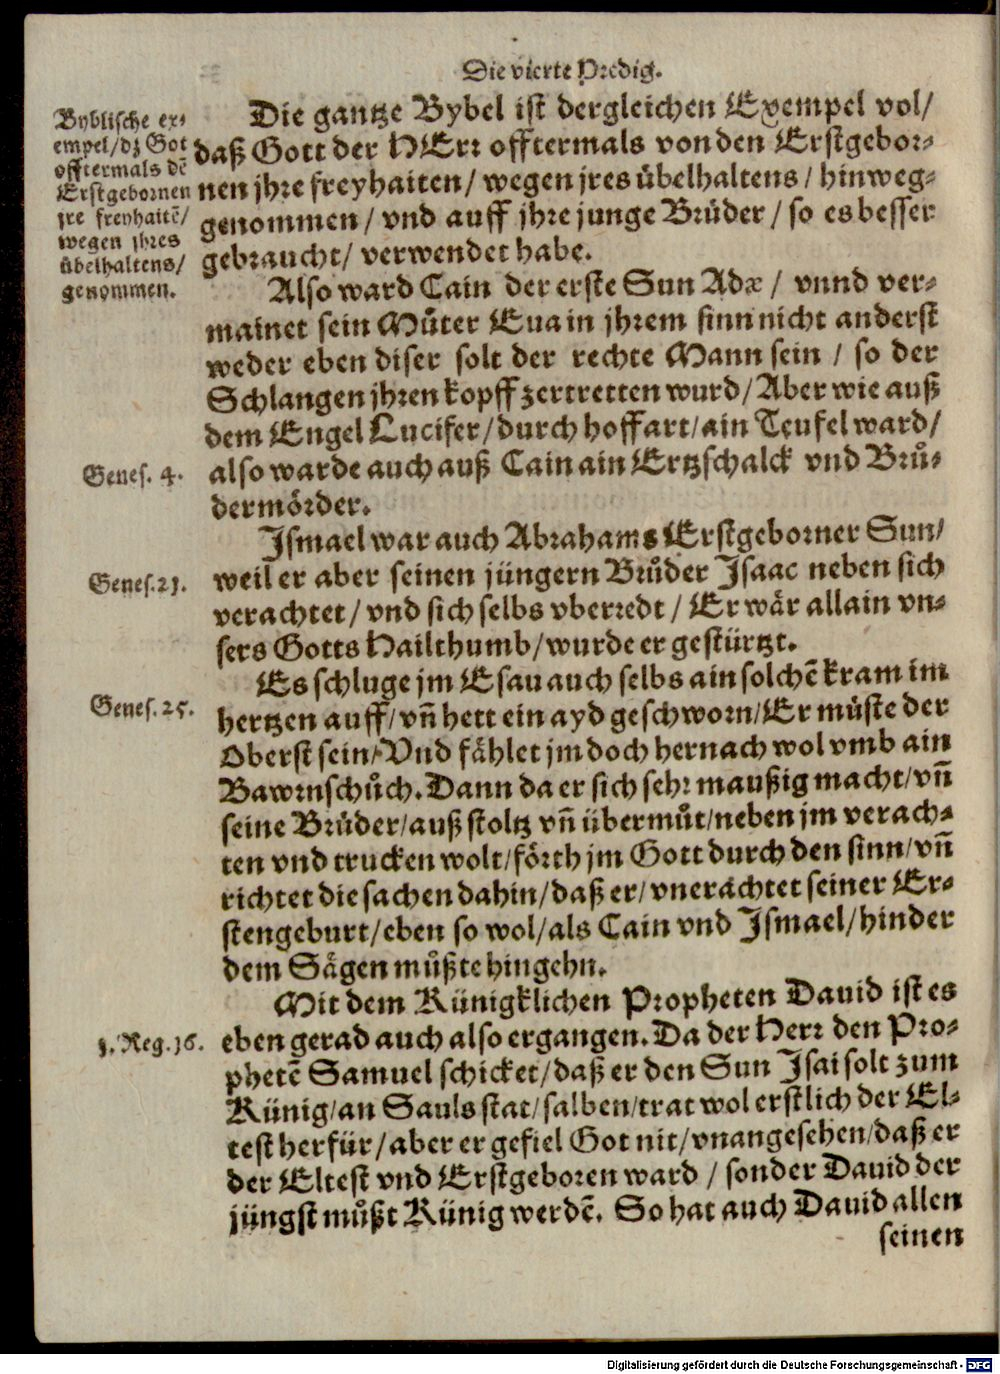 Die vierte Predig.
Byblische ex⸗
empel/dz Got
offtermals dē
Erstgebornen
jre freyhaitē/
wegen jhres
übelhaltens/
genommen.
Die gantze Bybel ist dergleichen Exempel vol/
daß Gott der HErr offtermals von den Erstgebor⸗
nen jhre freyhaiten/ wegen jres übelhaltens/ hinweg⸗
genommen/ vnd auff jhre junge Brüder/ so es besser
gebraucht/ verwendet habe.
Also ward Cain der erste Sun Adæ/ vnnd ver⸗
mainet sein Můter Eua in jhrem sinn nicht anderst
weder eben diser solt der rechte Mann sein/ so der
Schlangen jhren kopff zertretten wurd/ Aber wie auß
dem Engel Lucifer/ durch hoffart/ ain Teufel ward/
Genes. 4.
also warde auch auß Cain ain Ertzschalck vnd Brů⸗
dermörder.
Ismael war auch Abrahams Erstgeborner Sun/
Genes. 21.
weil er aber seinen jüngern Brůder Isaac neben sich
verachtet/ vnd sich selbs vberredt/ Er wär allain vn⸗
sers Gotts Hailthumb/ wurde er gestürtzt.
Es schluge jm Esau auch selbs ain solchē kram im
Genes. 25.
hertzen auff/ vñ hett ein ayd geschworn/ Er můste der
Oberst sein/ Vnd fählet jm doch hernach wol vmb ain
Bawrnschůch. Dann da er sich sehr maußig macht/ vñ
seine Brůder/ auß stoltz vñ übermůt/ neben jm verach⸗
ten vnd trucken wolt/ förth jm Gott durch den sinn/ vñ
richtet die sachen dahin/ daß er/ vnerachtet seiner Er⸗
stengeburt/ eben so wol/ als Cain vnd Ismael/ hinder
dem Sägen můßte hingehn.
Mit dem Künigklichen Propheten Dauid ist es
1. Reg. 16.
eben gerad auch also ergangen. Da der Herr den Pro⸗
phetē Samuel schicket/ daß er den Sun Isai solt zum
Künig/ an Sauls stat/ salben/ trat wol erstlich der El⸗
test herfür/ aber er gefiel Got nit/ vnangesehen/ daß er
der Eltest vnd Erstgeboren ward/ sonder Dauid der
jüngst můßt Künig werdē. So hat auch Dauid allen
seinen
Digitalisierung gefördert durch die Deutsche Forschungsgemeinschaft - DFG